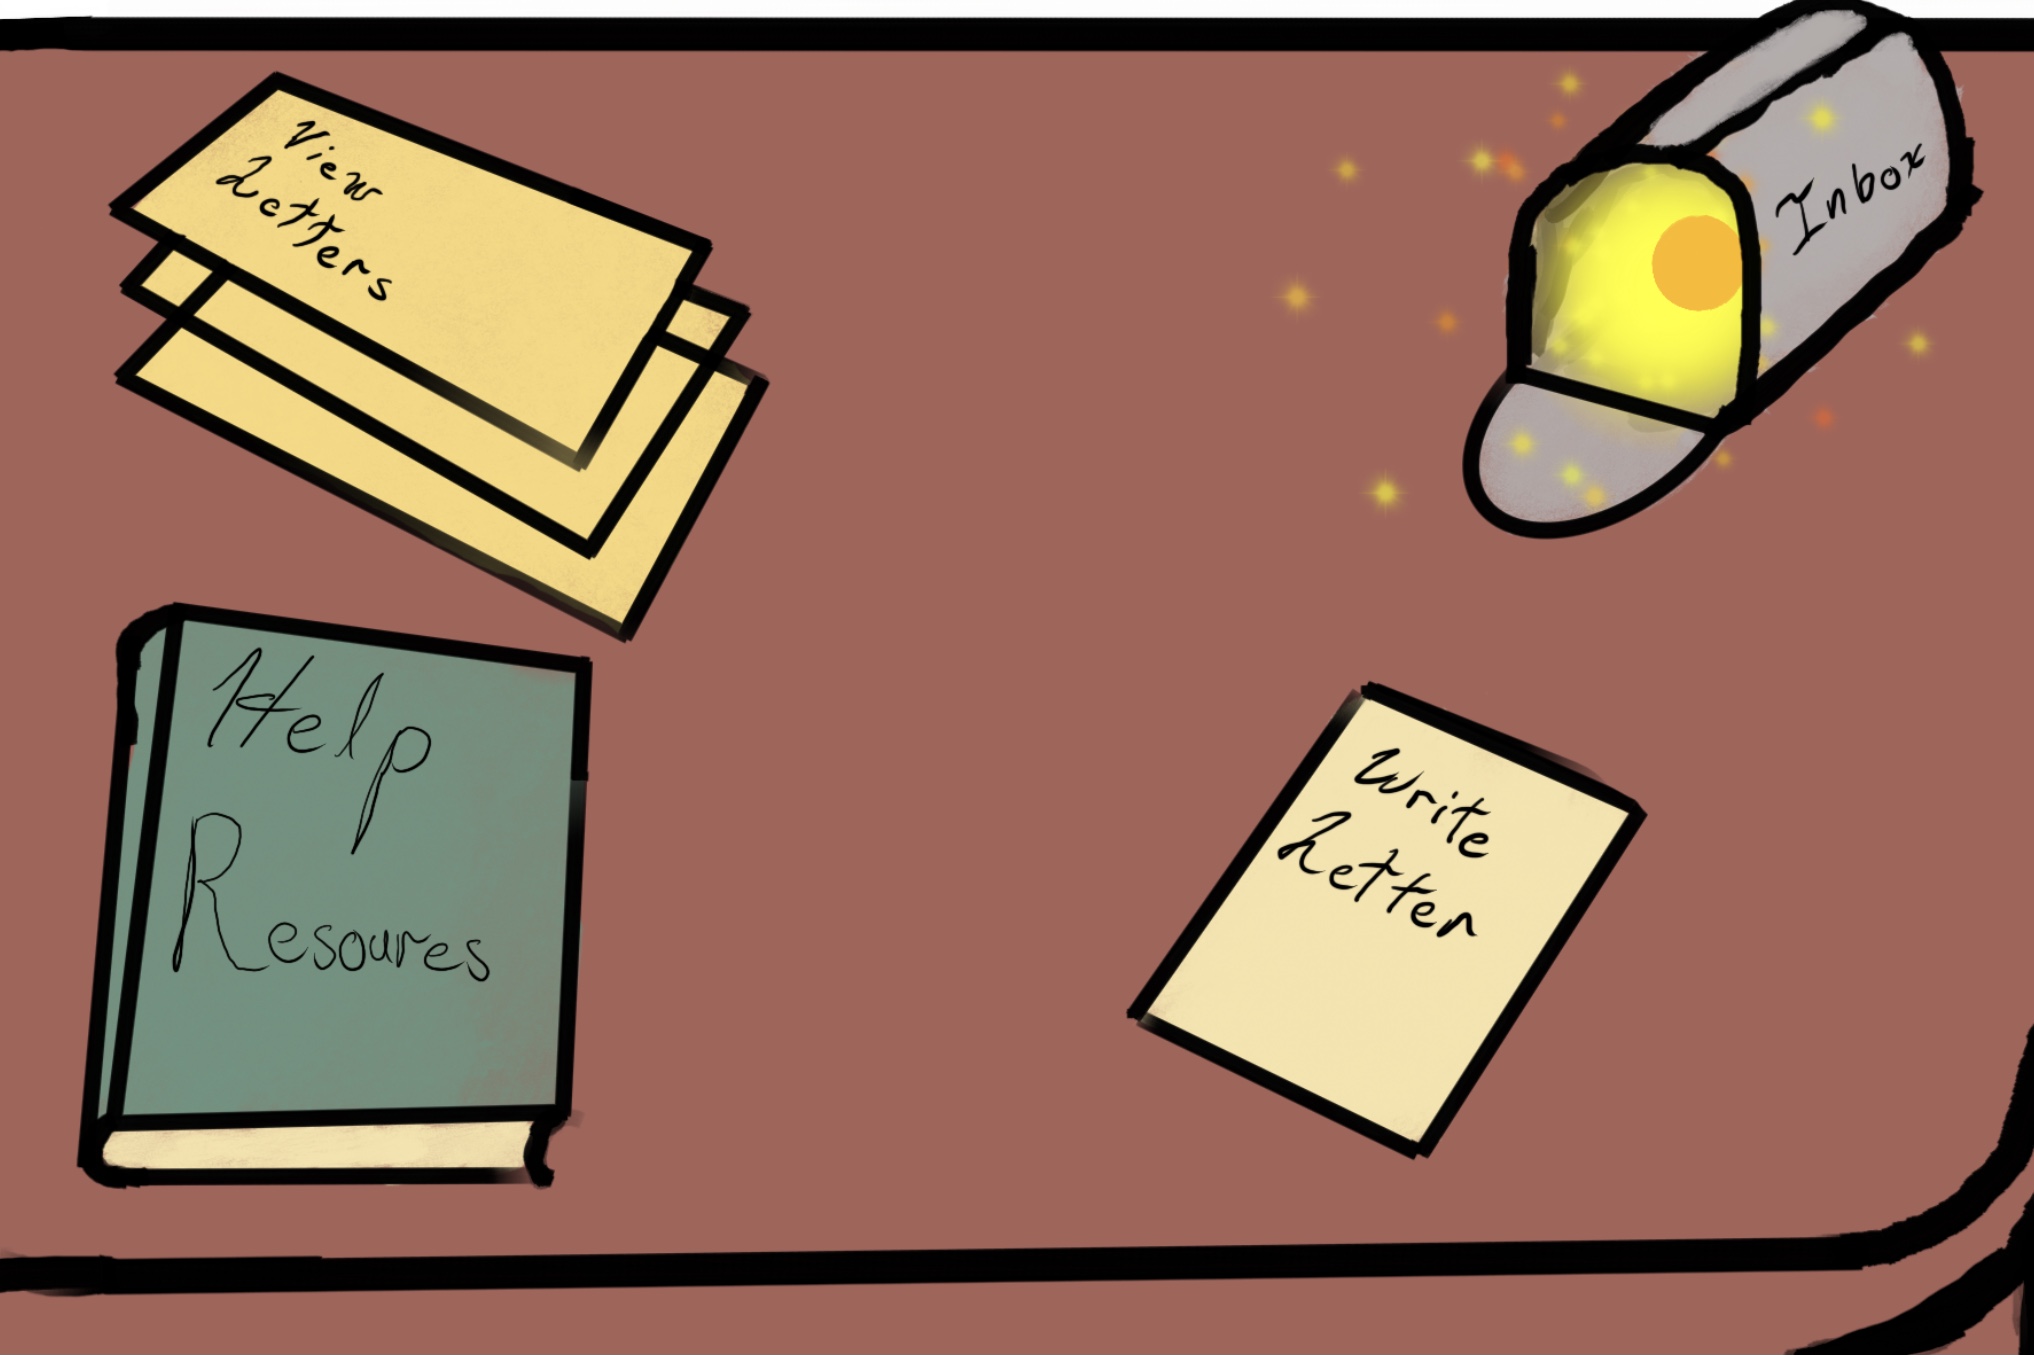 View
Letters
Inbox
Help
Resoures
Write
Letter